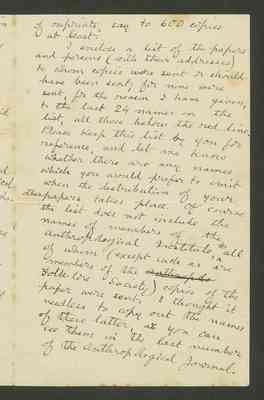 of reprints, say to 600 copies
at least.
I enclose a list of the papers
and persons (with their addresses)
to whom copies were sent or should
have been sent, for none were
sent, for the reason I have given,
to the last 24 names on the
list, all those below the red line.
Please keep this list by you for
reference, and let me know
whether there are any names
which you would prefer to omit
when the distribution of your
papers takes place. Of course
the list does not include the
names of members of the
Anthropological Institute to all
of whom (except such as are
members of the
Folklore Society) copies of the
paper were sent. I thought it
needless to copy out the names
of these latter, as you can
see them in the last number
of the Anthropological Journal.